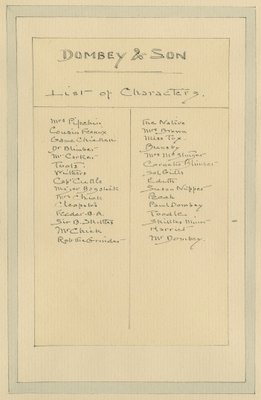 DOMBEY & SON
List of Characters.
Mrs Pipchin
Cousin Feenix
Game Chicken
Dr Blimber
Mr Carker
Toots
Withers
Cap' Cuttle
Major Bagstock
Mrs Chick
Cleopatra
Feeder B.A.
Sir B. Skettles
Mr Chick
Rob the Grinder
The Native
Mrs Brown
Miss Tox
Bunsby
Mrs McStinger
Cornelia Blimber
Sol Gills
Edith
Susan Nipper
Perch
Paul Dombey
Toodle
Skittles Minor
Harriet
Mr Dombey.